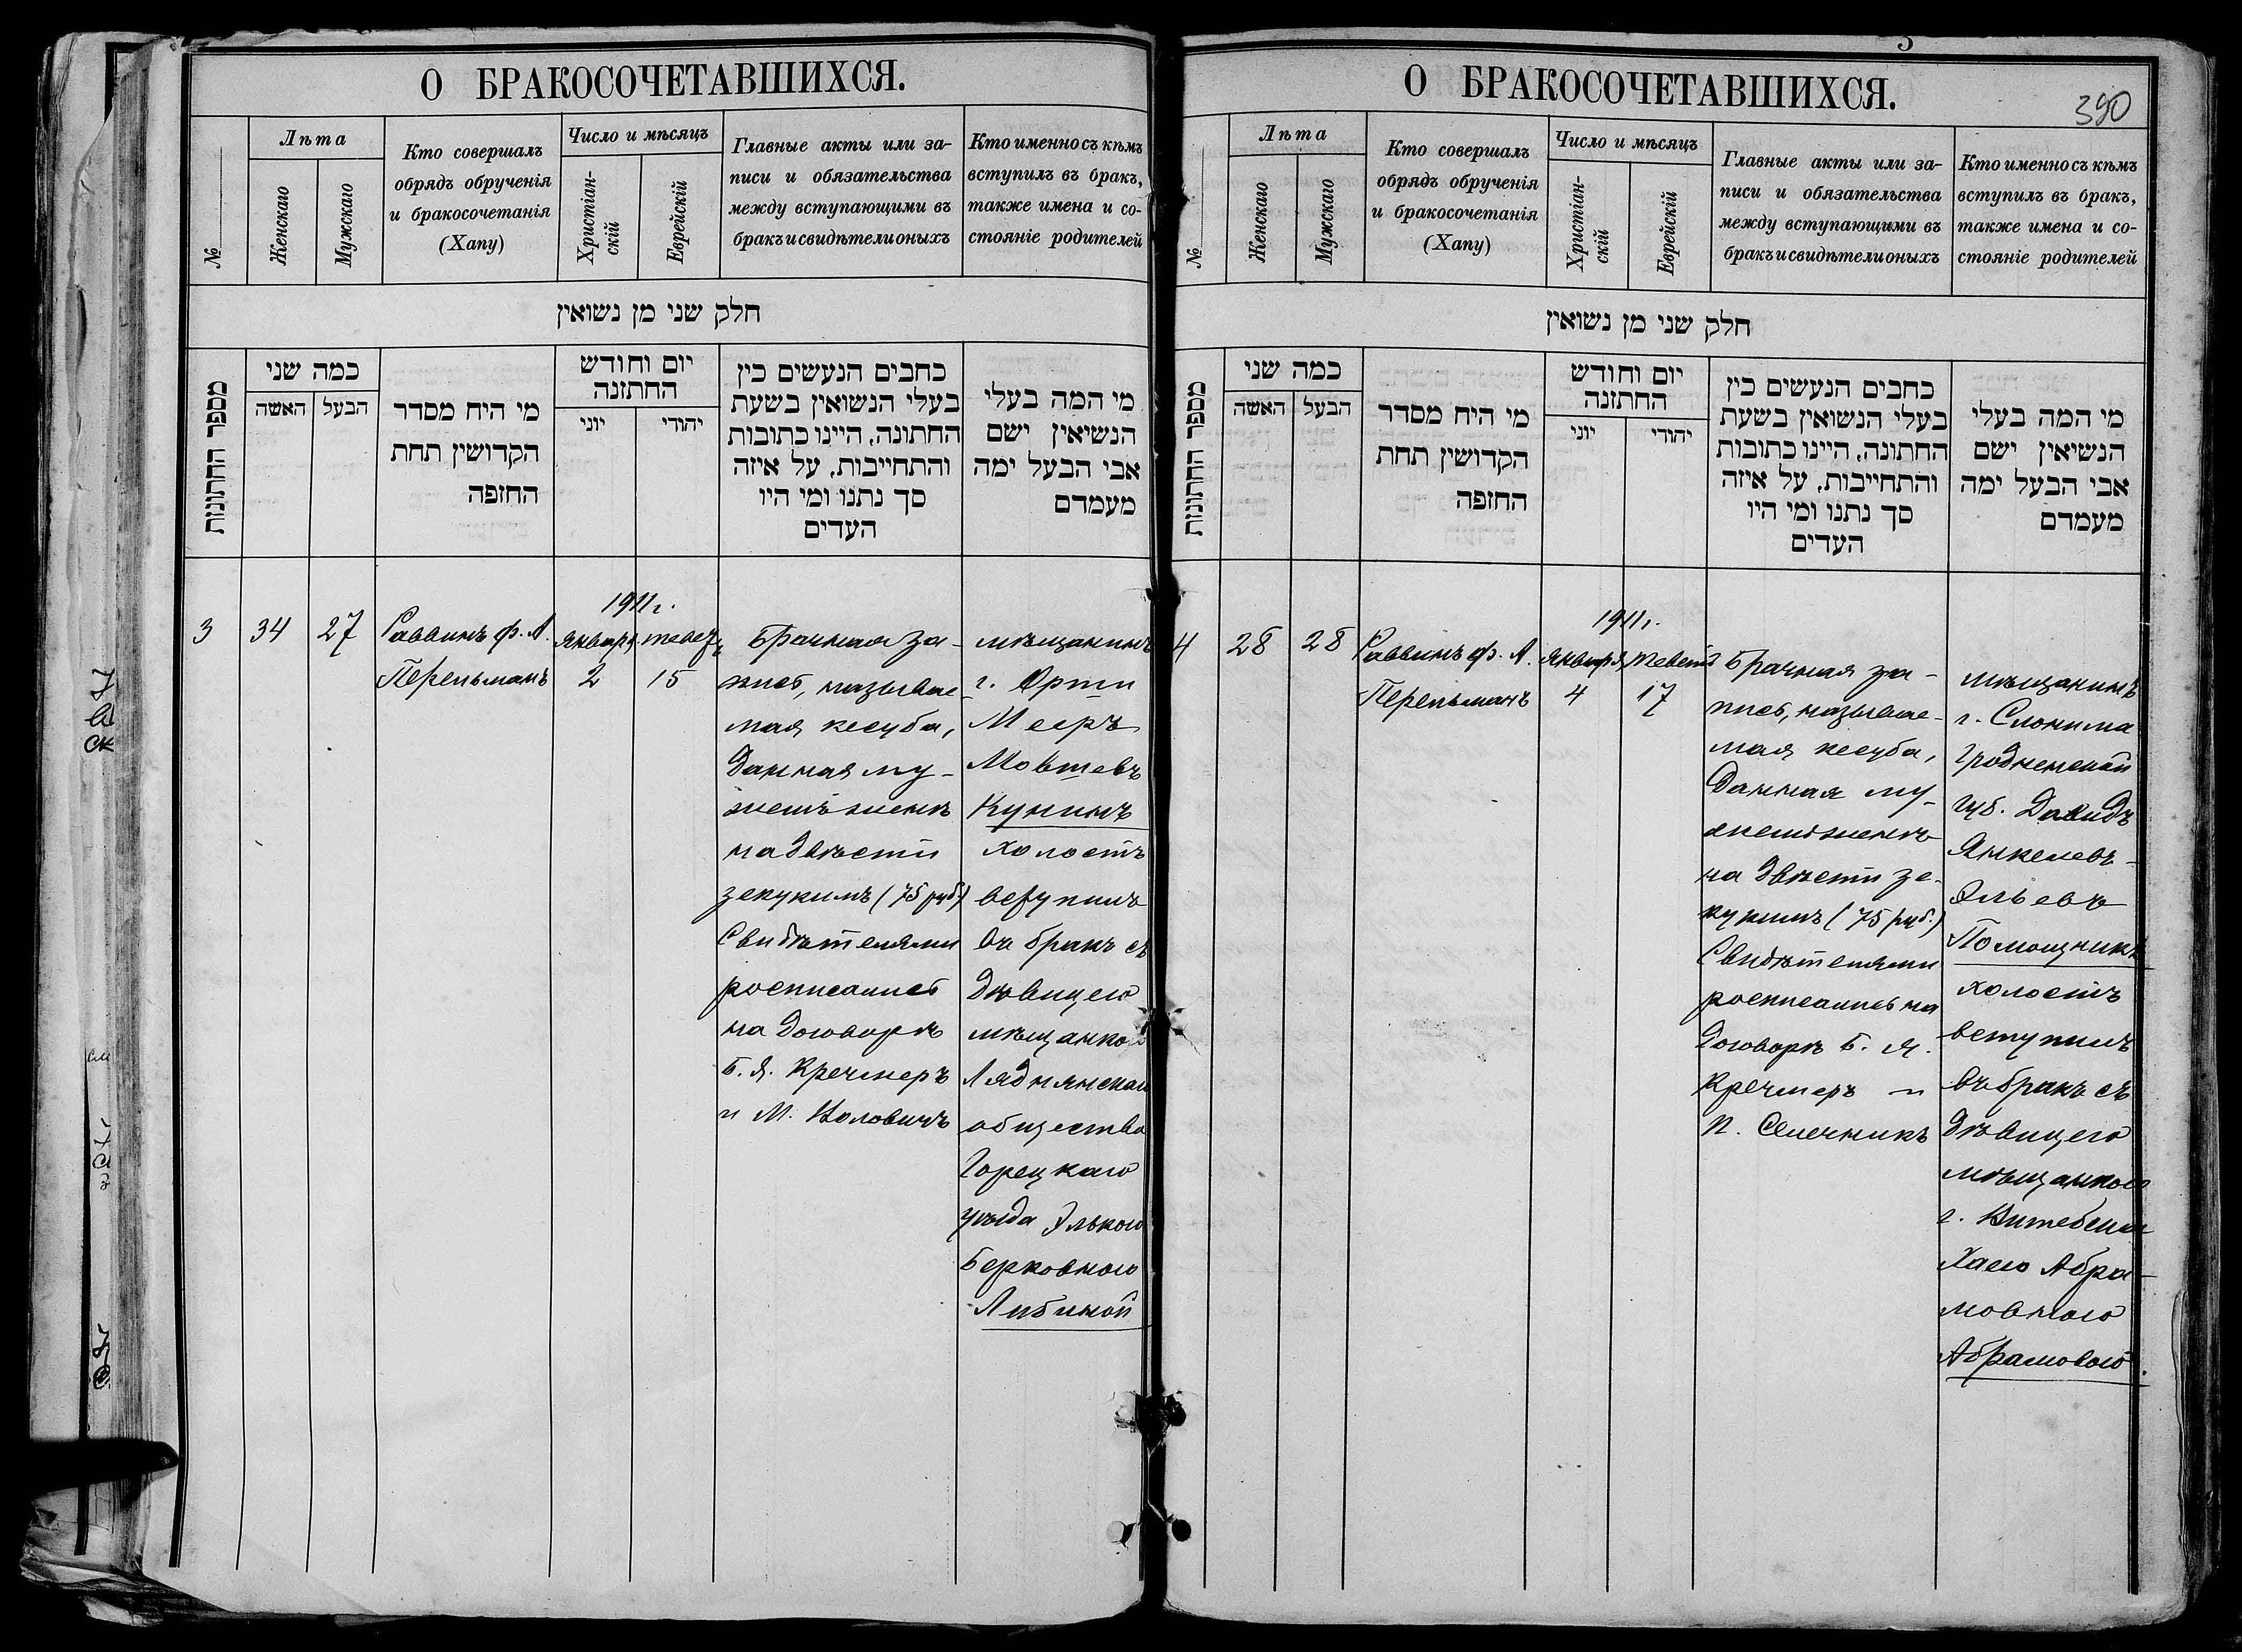 О БРАКОСОЧЕТАВШИХСЯ.
№
Лѣта
Женскаго
Мужскаго
Кто совершалъ
обрядъ обрученія
и бракосочетанія
(Хапу)
Число и мѣсяцъ
Христіан-
скій
Еврейскій
Главные акты или за-
писи и обязательства
между вступающими въ
бракъ и свидѣтели оныхъ
Кто именно съ кѣмъ
вступилъ въ бракъ,
также имена и со-
стояніе родителей
חלק שני מן נשואין
מספר החתונות
כמה שני
האשה
הבעל
מי היח מסדר
הקדושין תחת
החופה
יום וחודש
החתונה
יוני
יהודי
כחבים הנעשים כין
בעלי הנשואין בשעת
החתונה, היינו כתובות
והתחייבות, על איזה
סך נתנו ומי היו
העדים
מי המה בעלי
הנשיאין ישם
אבי הבעל ימה
מעמדם
3
34
27
Раввинъ ф. А.
Перельманъ
1911 г.
Января
2
тевеѳъ
15
Брачная за-
пись, называе
мая кесуба,
данная му-
жемъ женѣ
на двѣсти
зекукимъ (75 руб.)
Свидѣтелями
росписались
на договорѣ
Б. Я. Кречмеръ
и М. Воловичъ
мѣщанинъ
г. Орши
Мееръ
Мовшевъ
Кунинъ
холостъ
вступилъ
въ бракъ съ
дѣвицею
мѣщанкою
Ляднянскаго
общества
Горецкаго
уѣзда Элькою
Берковною
Либиной
О БРАКОСОЧЕТАВШИХСЯ.
390
№
Лѣта
Женскаго
Мужскаго
Кто совершалъ
обрядъ обрученія
и бракосочетанія
(Хапу)
Число и мѣсяцъ
Христіан-
скій
Еврейскій
Главные акты или за-
писи и обязательства
между вступающими въ
бракъ и свидѣтели оныхъ
Кто именно съ кѣмъ
вступилъ въ бракъ,
также имена и со-
стояніе родителей
חלק שני מן נשואין
מספר החתונות
כמה שני
האשה
הבעל
מי היח מסדר
הקדושין תחת
החופה
יום וחודש
החתונה
יוני
יהודי
כחבים הנעשים כין
בעלי הנשואין בשעת
החתונה, היינו כתובות
והתחייבות, על איזה
סך נתנו ומי היו
העדים
מי המה בעלי
הנשיאין ישם
אבי הבעל ימה
מעמדם
4
28
28
Раввинъ ф. А.
Перельманъ
1911 г.
Января
4
тевеѳъ
17
Брачная за-
пись, называе-
мая кесуба,
данная му-
жемъ женѣ
на двѣсти зе-
кукимъ (75 руб.)
Свидѣтелями
росписались на
договорѣ Б. Я.
Кречмеръ и
П. Сллечникъ
мѣщанинъ
г. Слонима
Гродненской
губ. Давидъ
Янкелевъ-
Эльевъ
Помощникъ
холостъ
вступилъ
въ бракъ съ
дѣвицею
мѣщанкою
г. Витебска
Хаею Абра-
мовною
Абрамовою.